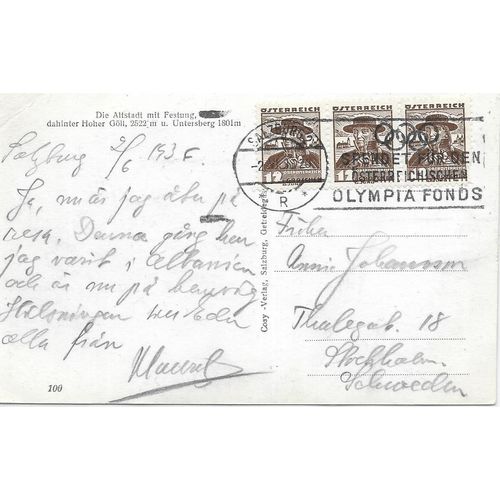 Die Altstadt mit Festung,
dahinter Hoher Göll, 2522 m u. Untersberg 1801m
ÖSTERREICH ÖSTERREICH ÖSTERREICH
12 12 12
SALZBURG
R
SPENDET FÜR DEN
ÖSTERREICHISCHEN
OLYMPIA FONDS
Salzburg 2/6 1936.
Ja, nu är jag åter på
resa. Denna gång har
jag varit i Albanien
och är nu på hemväg
Hälsningar till Eder
alla från
Cosy-Verlag, Salzburg, Getreideg.
Annie Johansson
18
Stockholm
Schweden
100